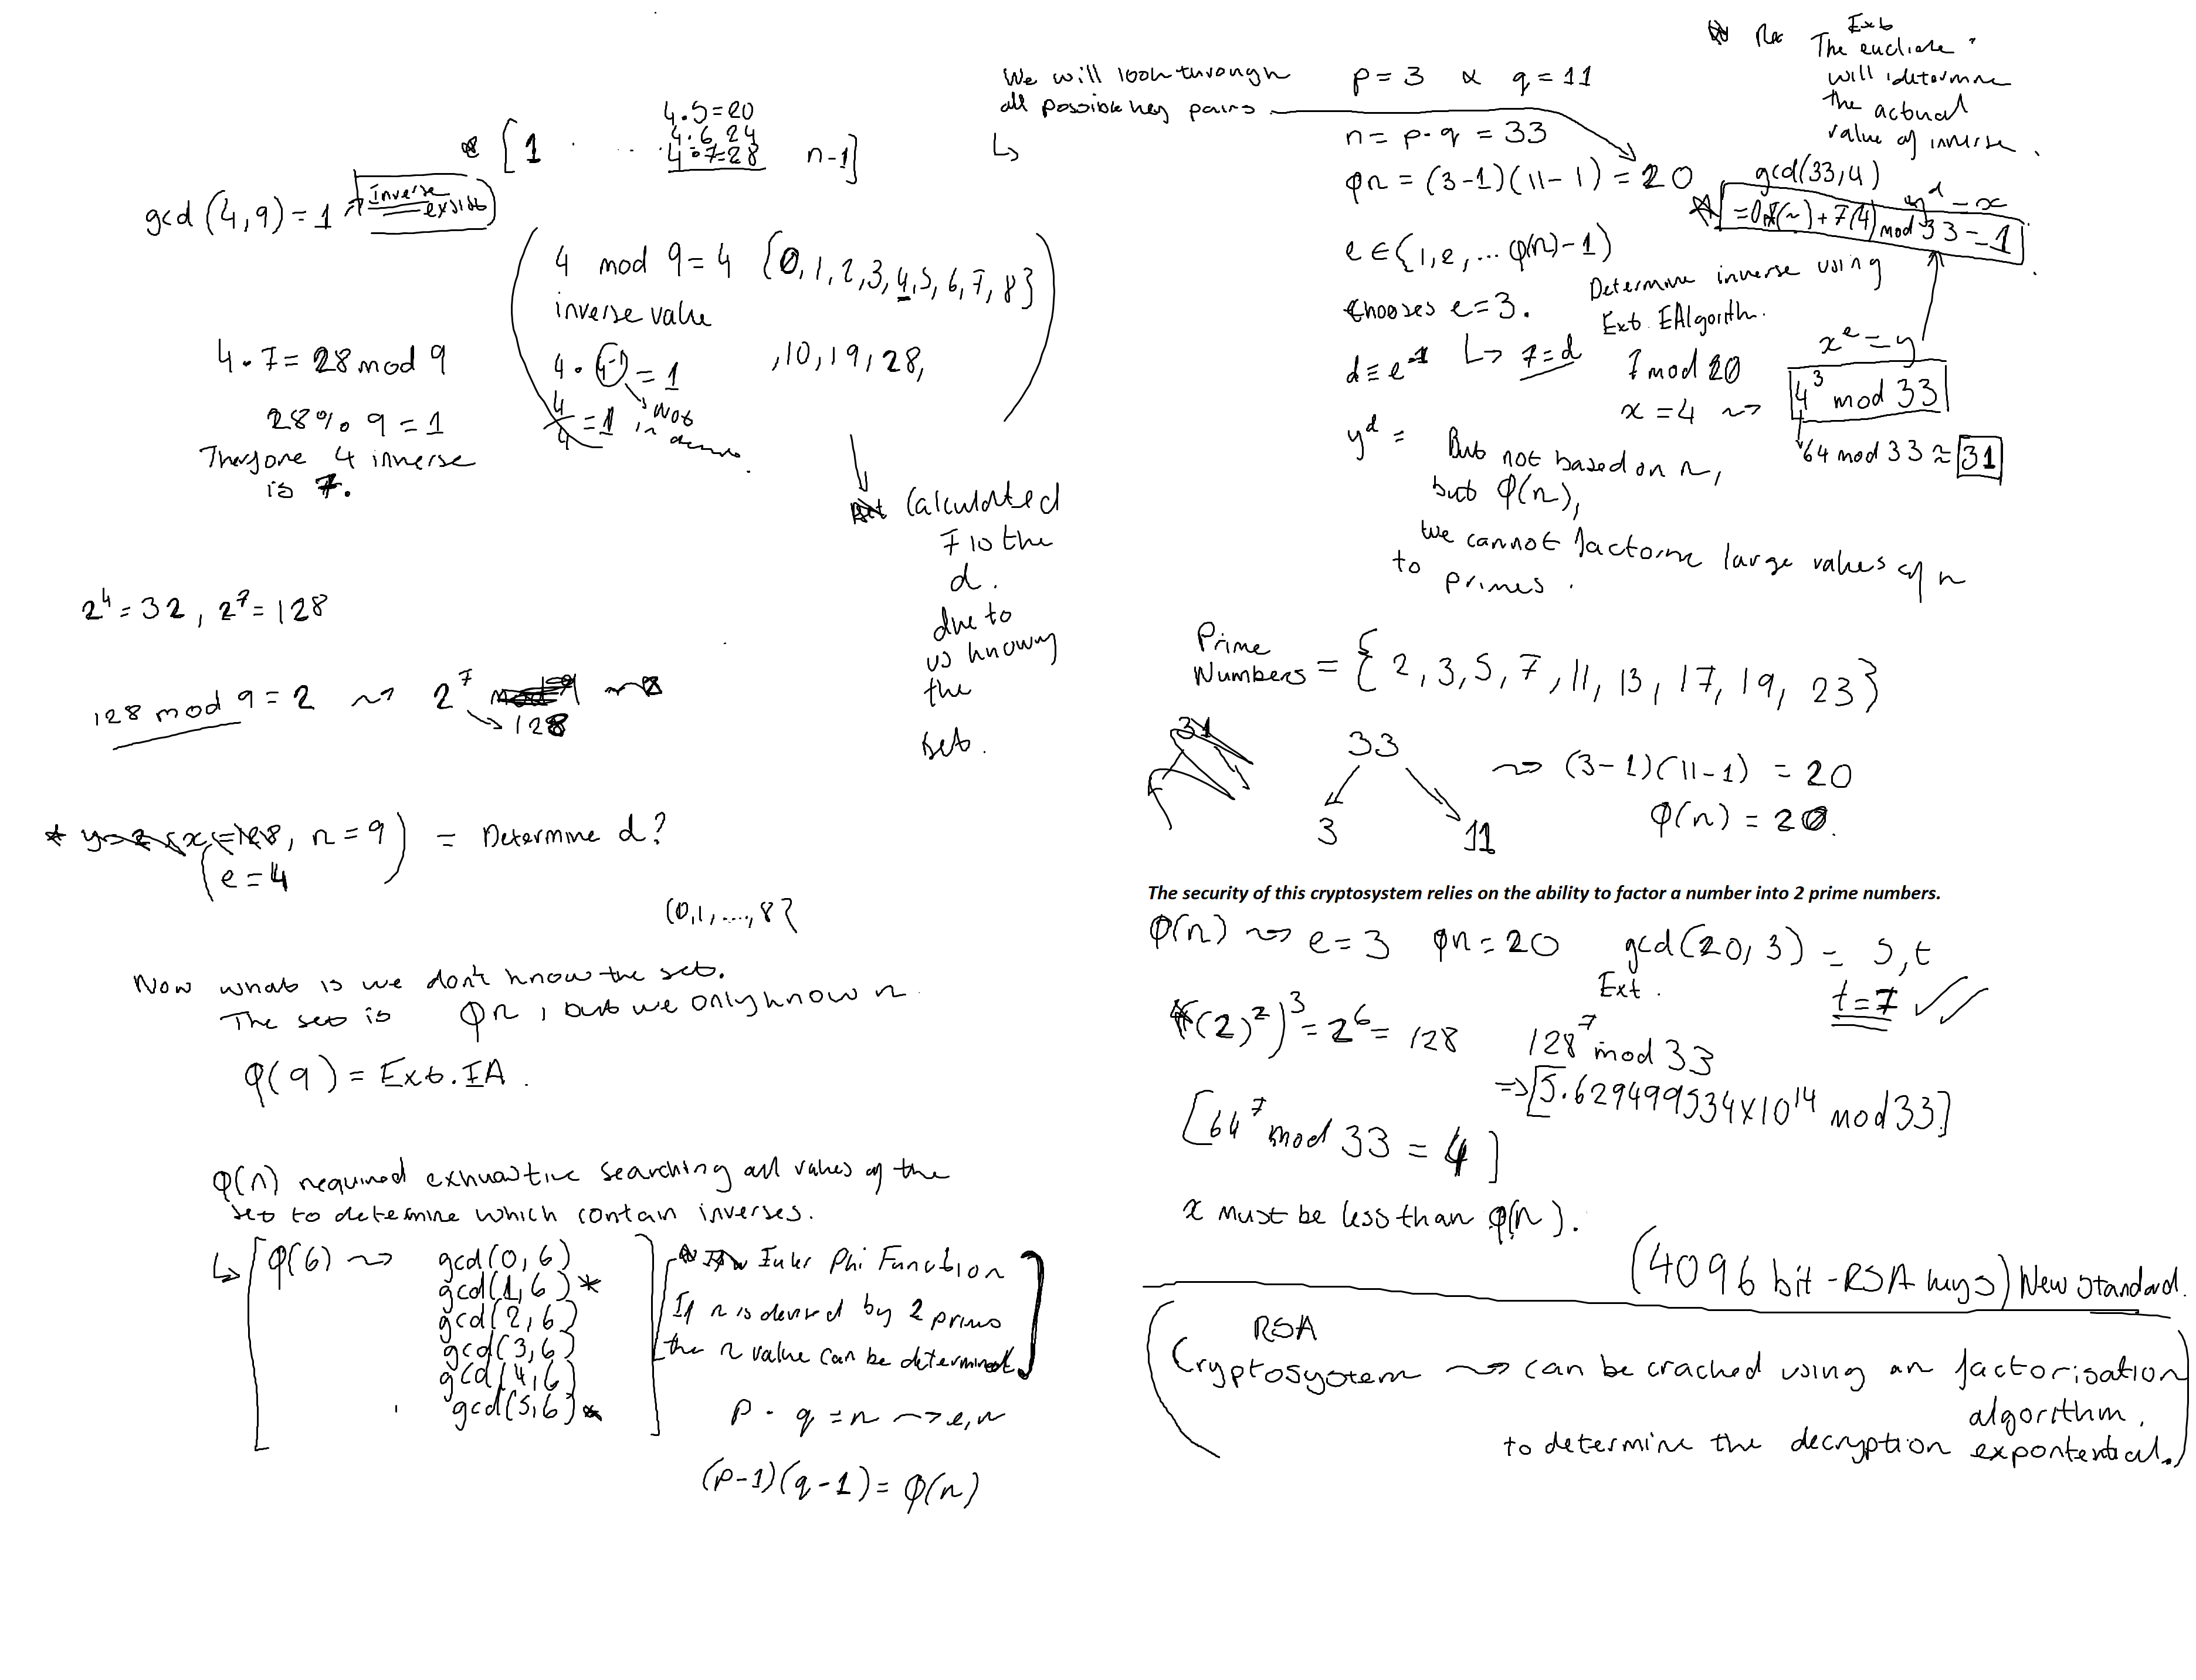 4.5=20
4.6, 24
4.7=28
[1 . . . n-1]
gcd(4,9)=1
inverse
exsists
4 mod 9=4 {0,1,2,3,4,5,6,7,8}
inverse value
4 · 4⁻¹ = 1 ,10,19,28,
4/4 = 1
Not
in
4·7=28 mod 9
28% 9=1
4 inverse
is 7.
Calculated
7 is the
d.
due to
us knowing
the
set.
2⁴=32, 2⁷=128
128 mod 9=2 ~> 2⁷
128
n=9) = Determine d?
(e=4
(0,1,....,8}
Now what is we don't know the set.
The set is φn, but we only know n
φ(9) = Ext.EA.
φ(n) required exhuastive searching all values of the
set to determine which contain inverses.
φ(6) ~> gcd(0,6)
gcd(1,6)*
gcd(2,6)
gcd(3,6)
gcd(4,6)
gcd(5,6)*
Euler Phi Function
If n is derived by 2 primes
the n value can be determined.
p · q = n -> e,n
(p-1)(q-1)= φ(n)
We will look through
all possible key pairs
p=3 & q=11
n= p·q = 33
φn = (3-1)(11-1) = 20
e∈{1,e,...φ(n)-1)
Chooses e=3.
d≡e⁻¹ 7=d
yᵈ =
Ext
The
will determine
the actual
value of inverse.
gcd(33,4)
yᵈ=x
+7(4) mod 33=1
Determine inverse using
Ext. EAlgorith.
7 mod 20
x=4 ~>
xᵉ=y
4³ mod 33
64 mod 33 ≈ 31
But not based on n,
but φ(n),
we cannot factorise large values of n
to primes.
Prime
Numbers = {2,3,5,7,11,13,17,19,23}
31
33
3 11
~> (3-1)(11-1) = 20
φ(n) = 20.
The security of this cryptosystem relies on the ability to factor a number into 2 prime numbers.
φ(n) ~> e=3 φn=20 gcd(20,3) = s,t
Ext.
t=7
((2)²)³=2⁶= 128 128⁷ mod 33
=>[5.629499534x10¹⁴ mod 33]
[64⁷ mod 33 = 4]
x must be less than φ(n).
(4096 bit-RSA keys) New Standard.
RSA
Cryptosystem ~> can be cracked using an factorisation
algorithm.
to determine the decryption expontential.